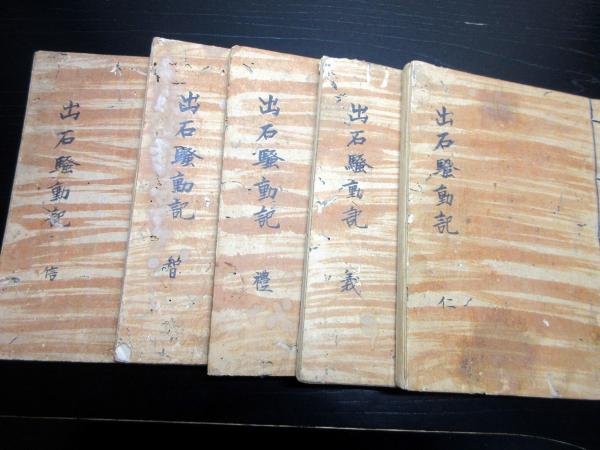 出石騒動記 仁
出石騒動記 義
出石騒動記 禮
出石騒動記 智
出石騒動記 信